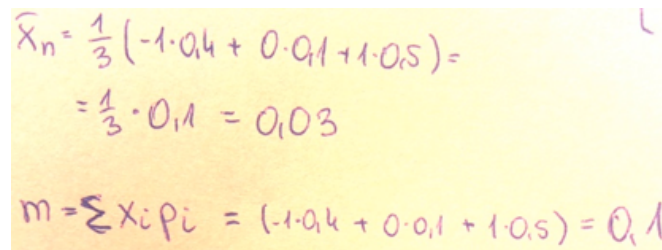 x̄n = 1/3 (-1·0,4 + 0·0,1 + 1·0,5) =
= 1/3 · 0,1 = 0,03
m = Σ xi pi = (-1·0,4 + 0·0,1 + 1·0,5) = 0,1